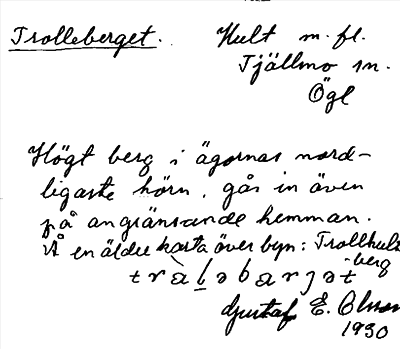 Trolleberget. Hult m. fl.
Tjällmo sn.
Ögl
Högt berg i ägornas nord-
ligaste hörn, går in även
på angränsande hemman.
Å en äldre karta över byn: Trollhults
berg
Gustaf E. Olsson
1930